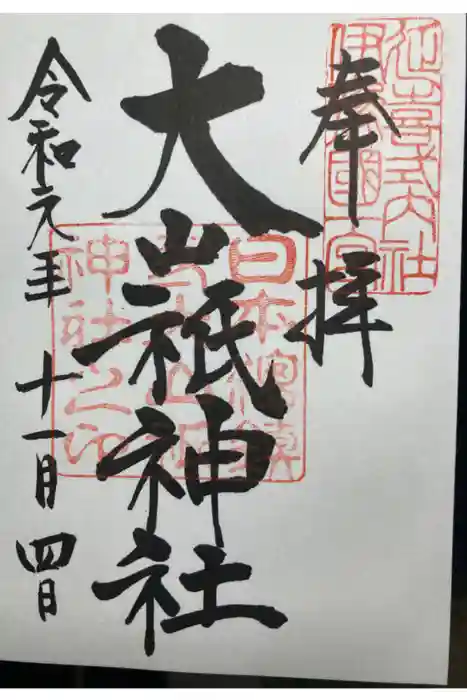 奉拝
延喜式内社
伊豫國一宮
大山祇神社
日本總鎮
大山祇
神社之印
令和元年十一月四日